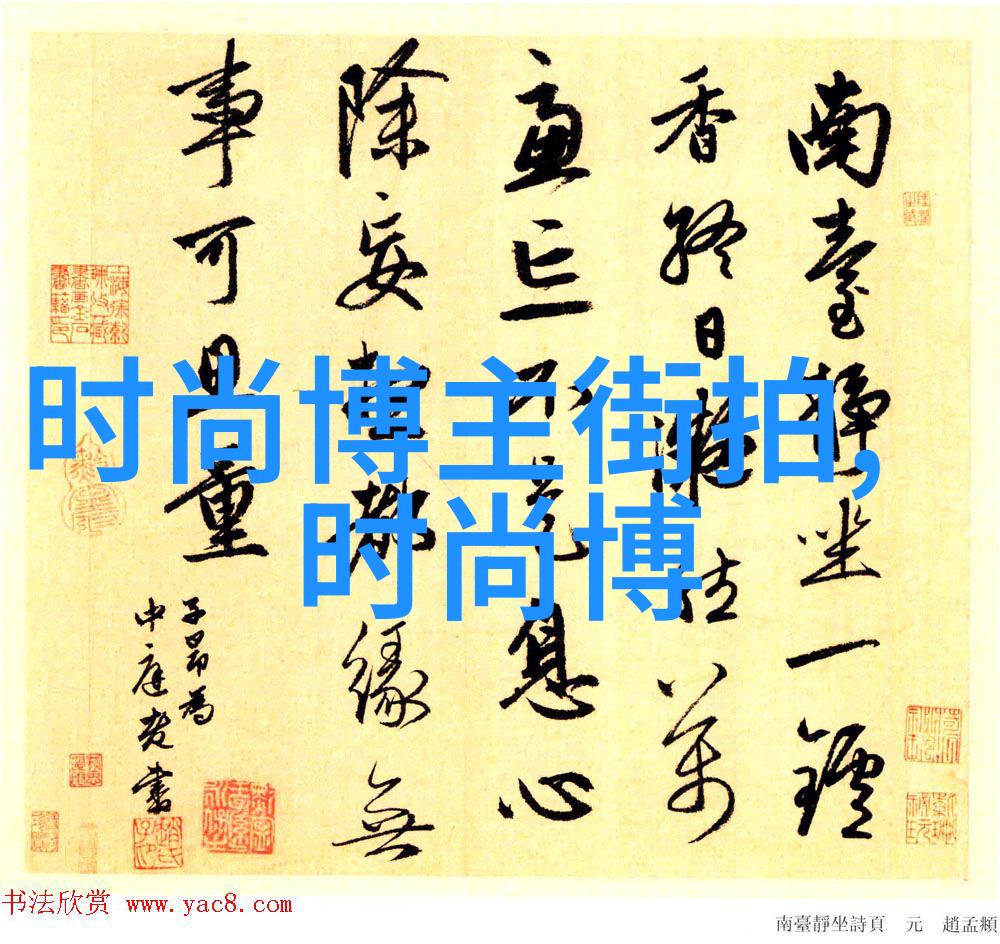 南臺靜坐一鑪
香終日凝然萬
慮亡不是息心
除妄想都緣無
事可思量
子昂為
中庭老書
时尚博主街拍,
时尚博
书法欣赏 www.yac8.com
南臺靜坐詩頁 元 趙孟頫